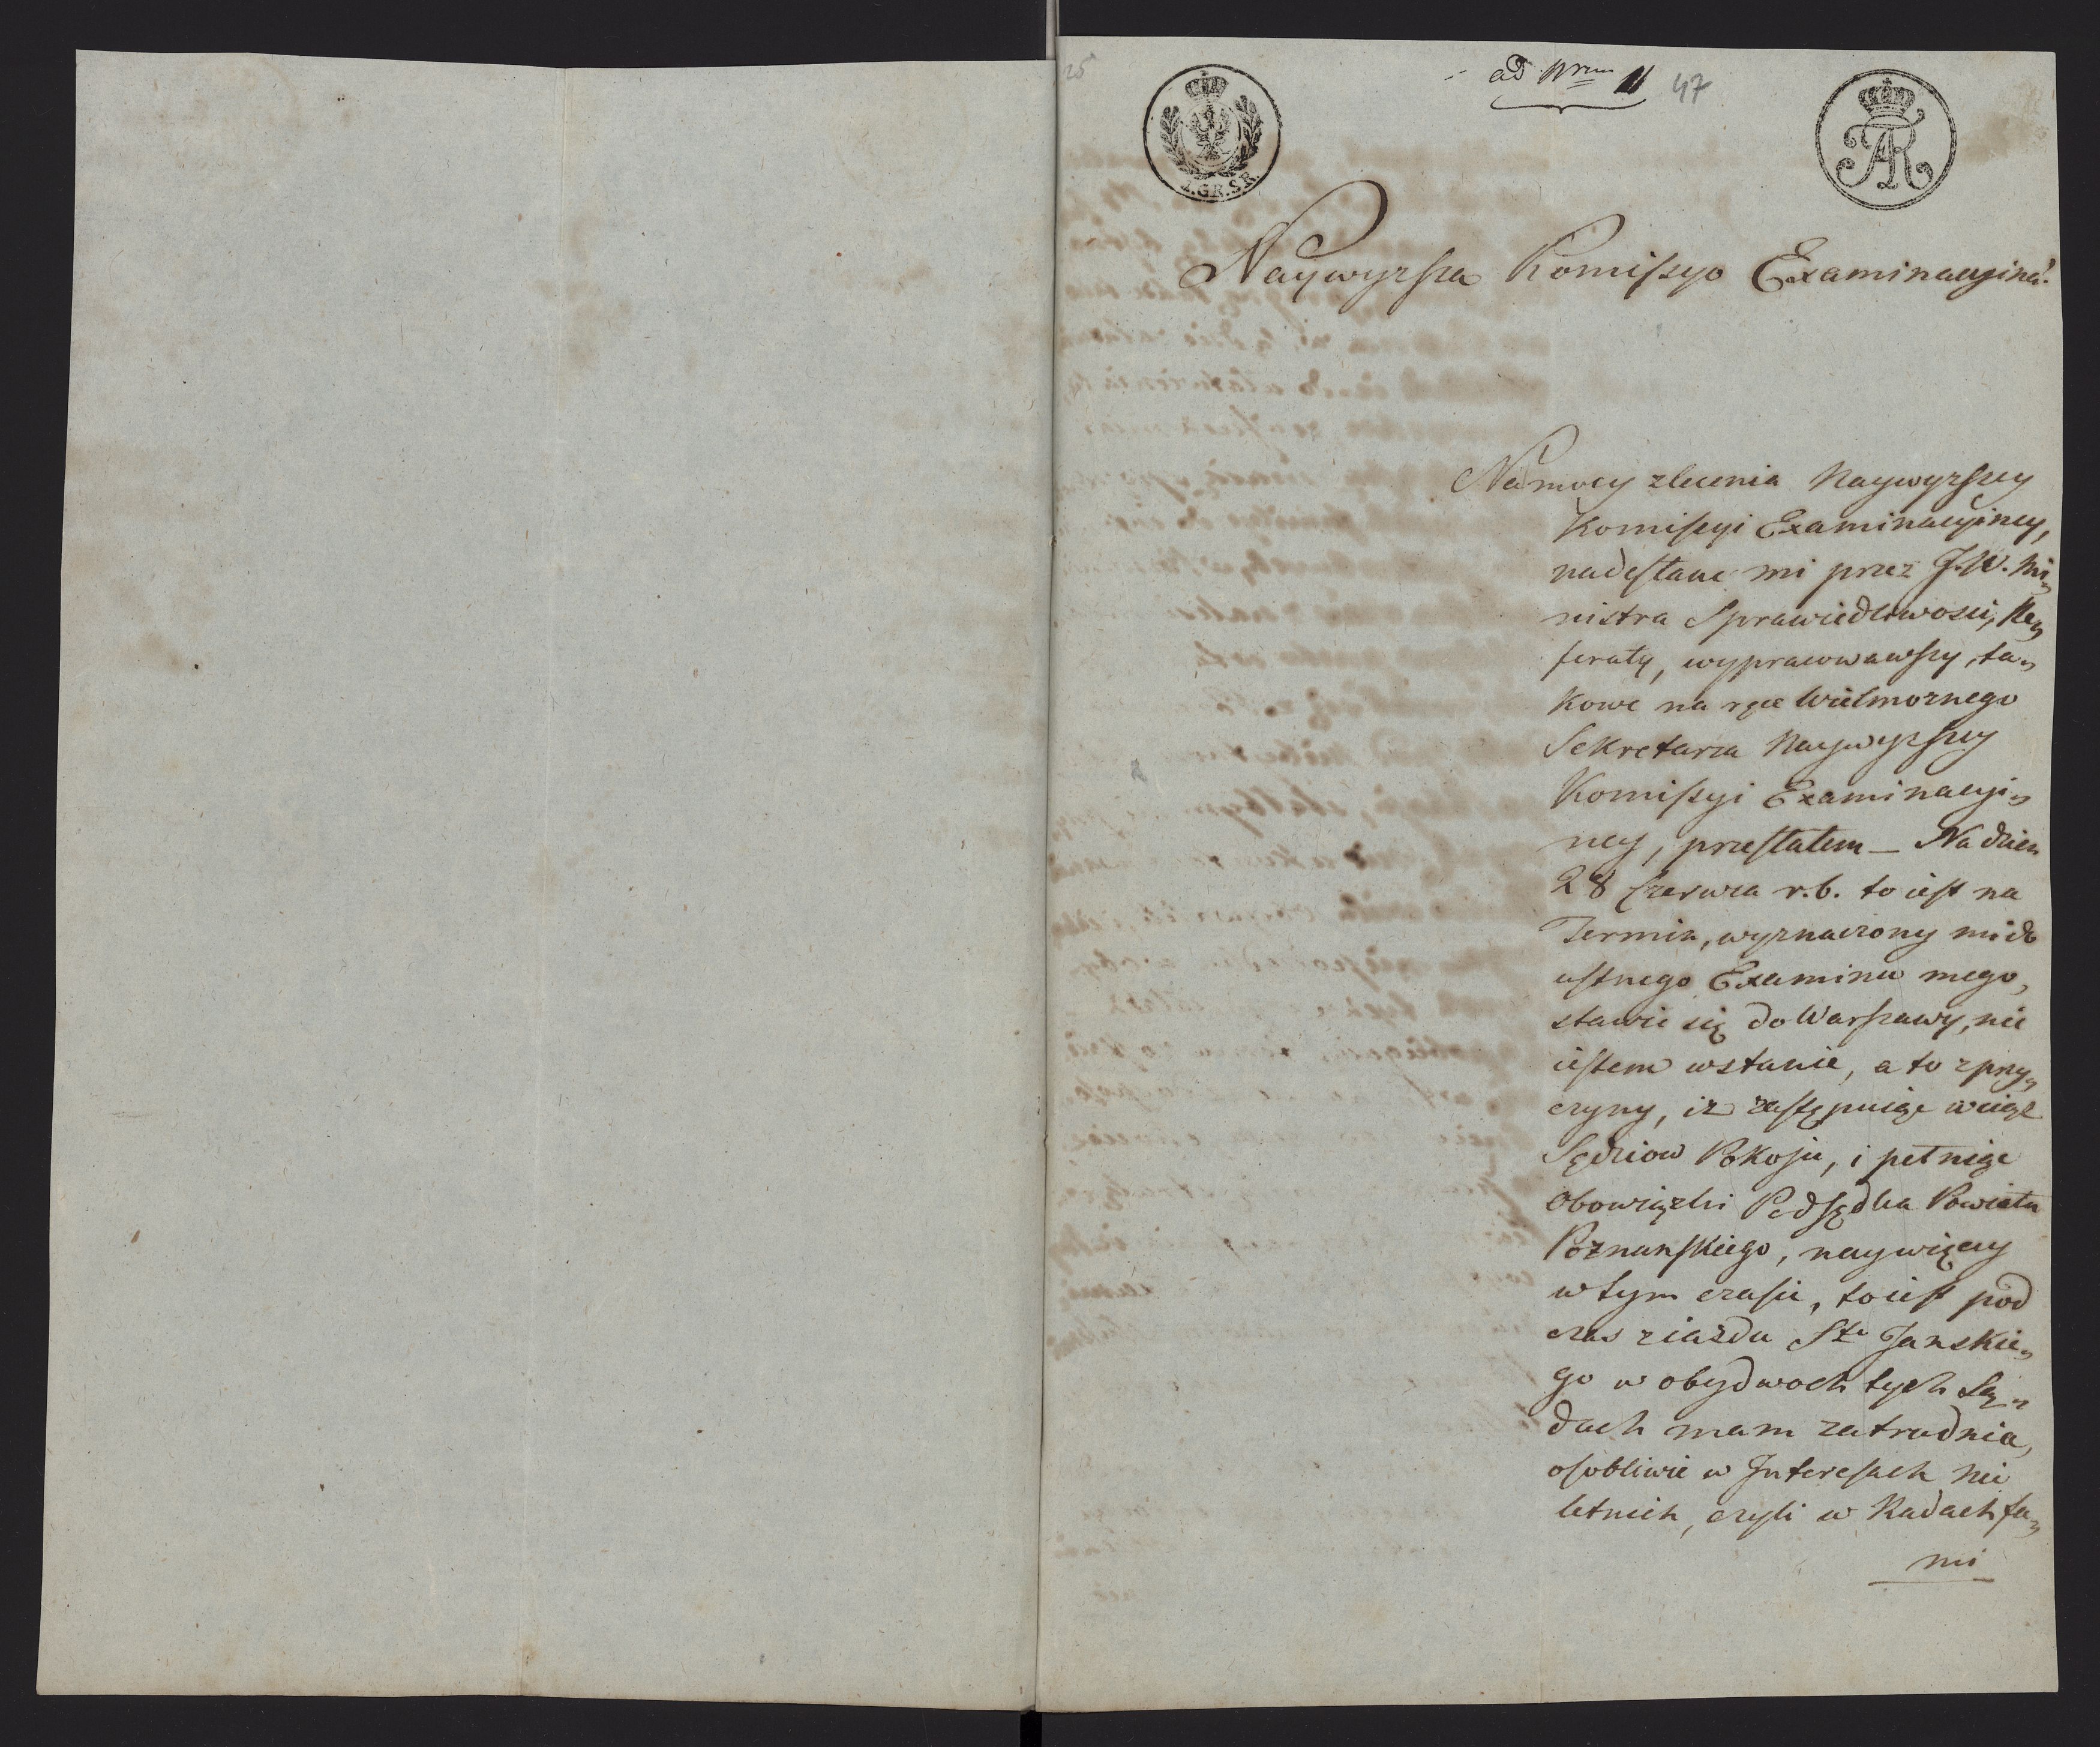 25
ad Nrum 11 47
2.GR.S.R.
Naywyzsza Komissyo Examinacyina!
Na mocy zlecenia Naywyzszey
Komissyi Examinacyiney,
nadesłane mi przez J.W. Mi„
nistra Sprawiedliwosci, Re„
feraty, wypracowawszy, ta„
kowe na ręce Wielmoznego
Sekretarza Naywyzszey
Komissyi Examinacyi„
ney, przesłałem _ Na dzien
28 Czerwca r.b. to iest na
Termin, wyznaczony mi do
ustnego Examinu mego,
stawic się do Warszawy, nie
iestem wstanie, a to zprzy„
czyny, iz zastępuiąc wciąz
Sędziow Pokoju, i pełniąc
obowiązki Podsędka Powiatu
Poznanskiego, naywięcey
wtym czasie, toiest pod
czas ziazdu Sto Janskie„
go w obydwoch tych Są„
dach mam zatrudnia,
osobliwie w Interesach Nie
letnich, czyli w Radach fa„
mi